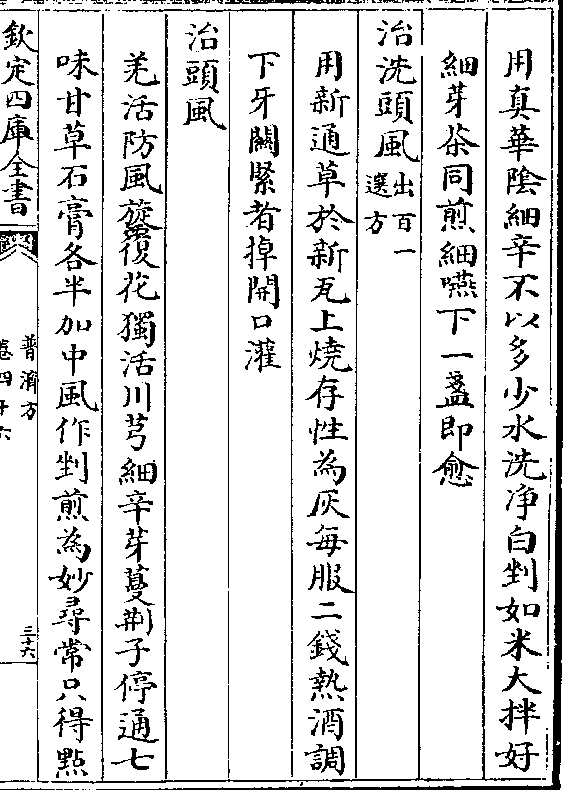 用真華陰細辛不以多少水洗净自剉如米大拌好
細芽茶同煎細嚥下一盞即愈
治洗頭風出百一選方
用新通草於新瓦上燒存性為灰每服二錢熱酒調
下牙關緊者掉開口灌
治頭風
羌活防風旋覆花獨活川芎細辛芽蔓荆子停通七
味甘草石膏各半加中風作剉煎為妙尋常只得點
欽定四庫全書
普濟方
卷四十六
三十六